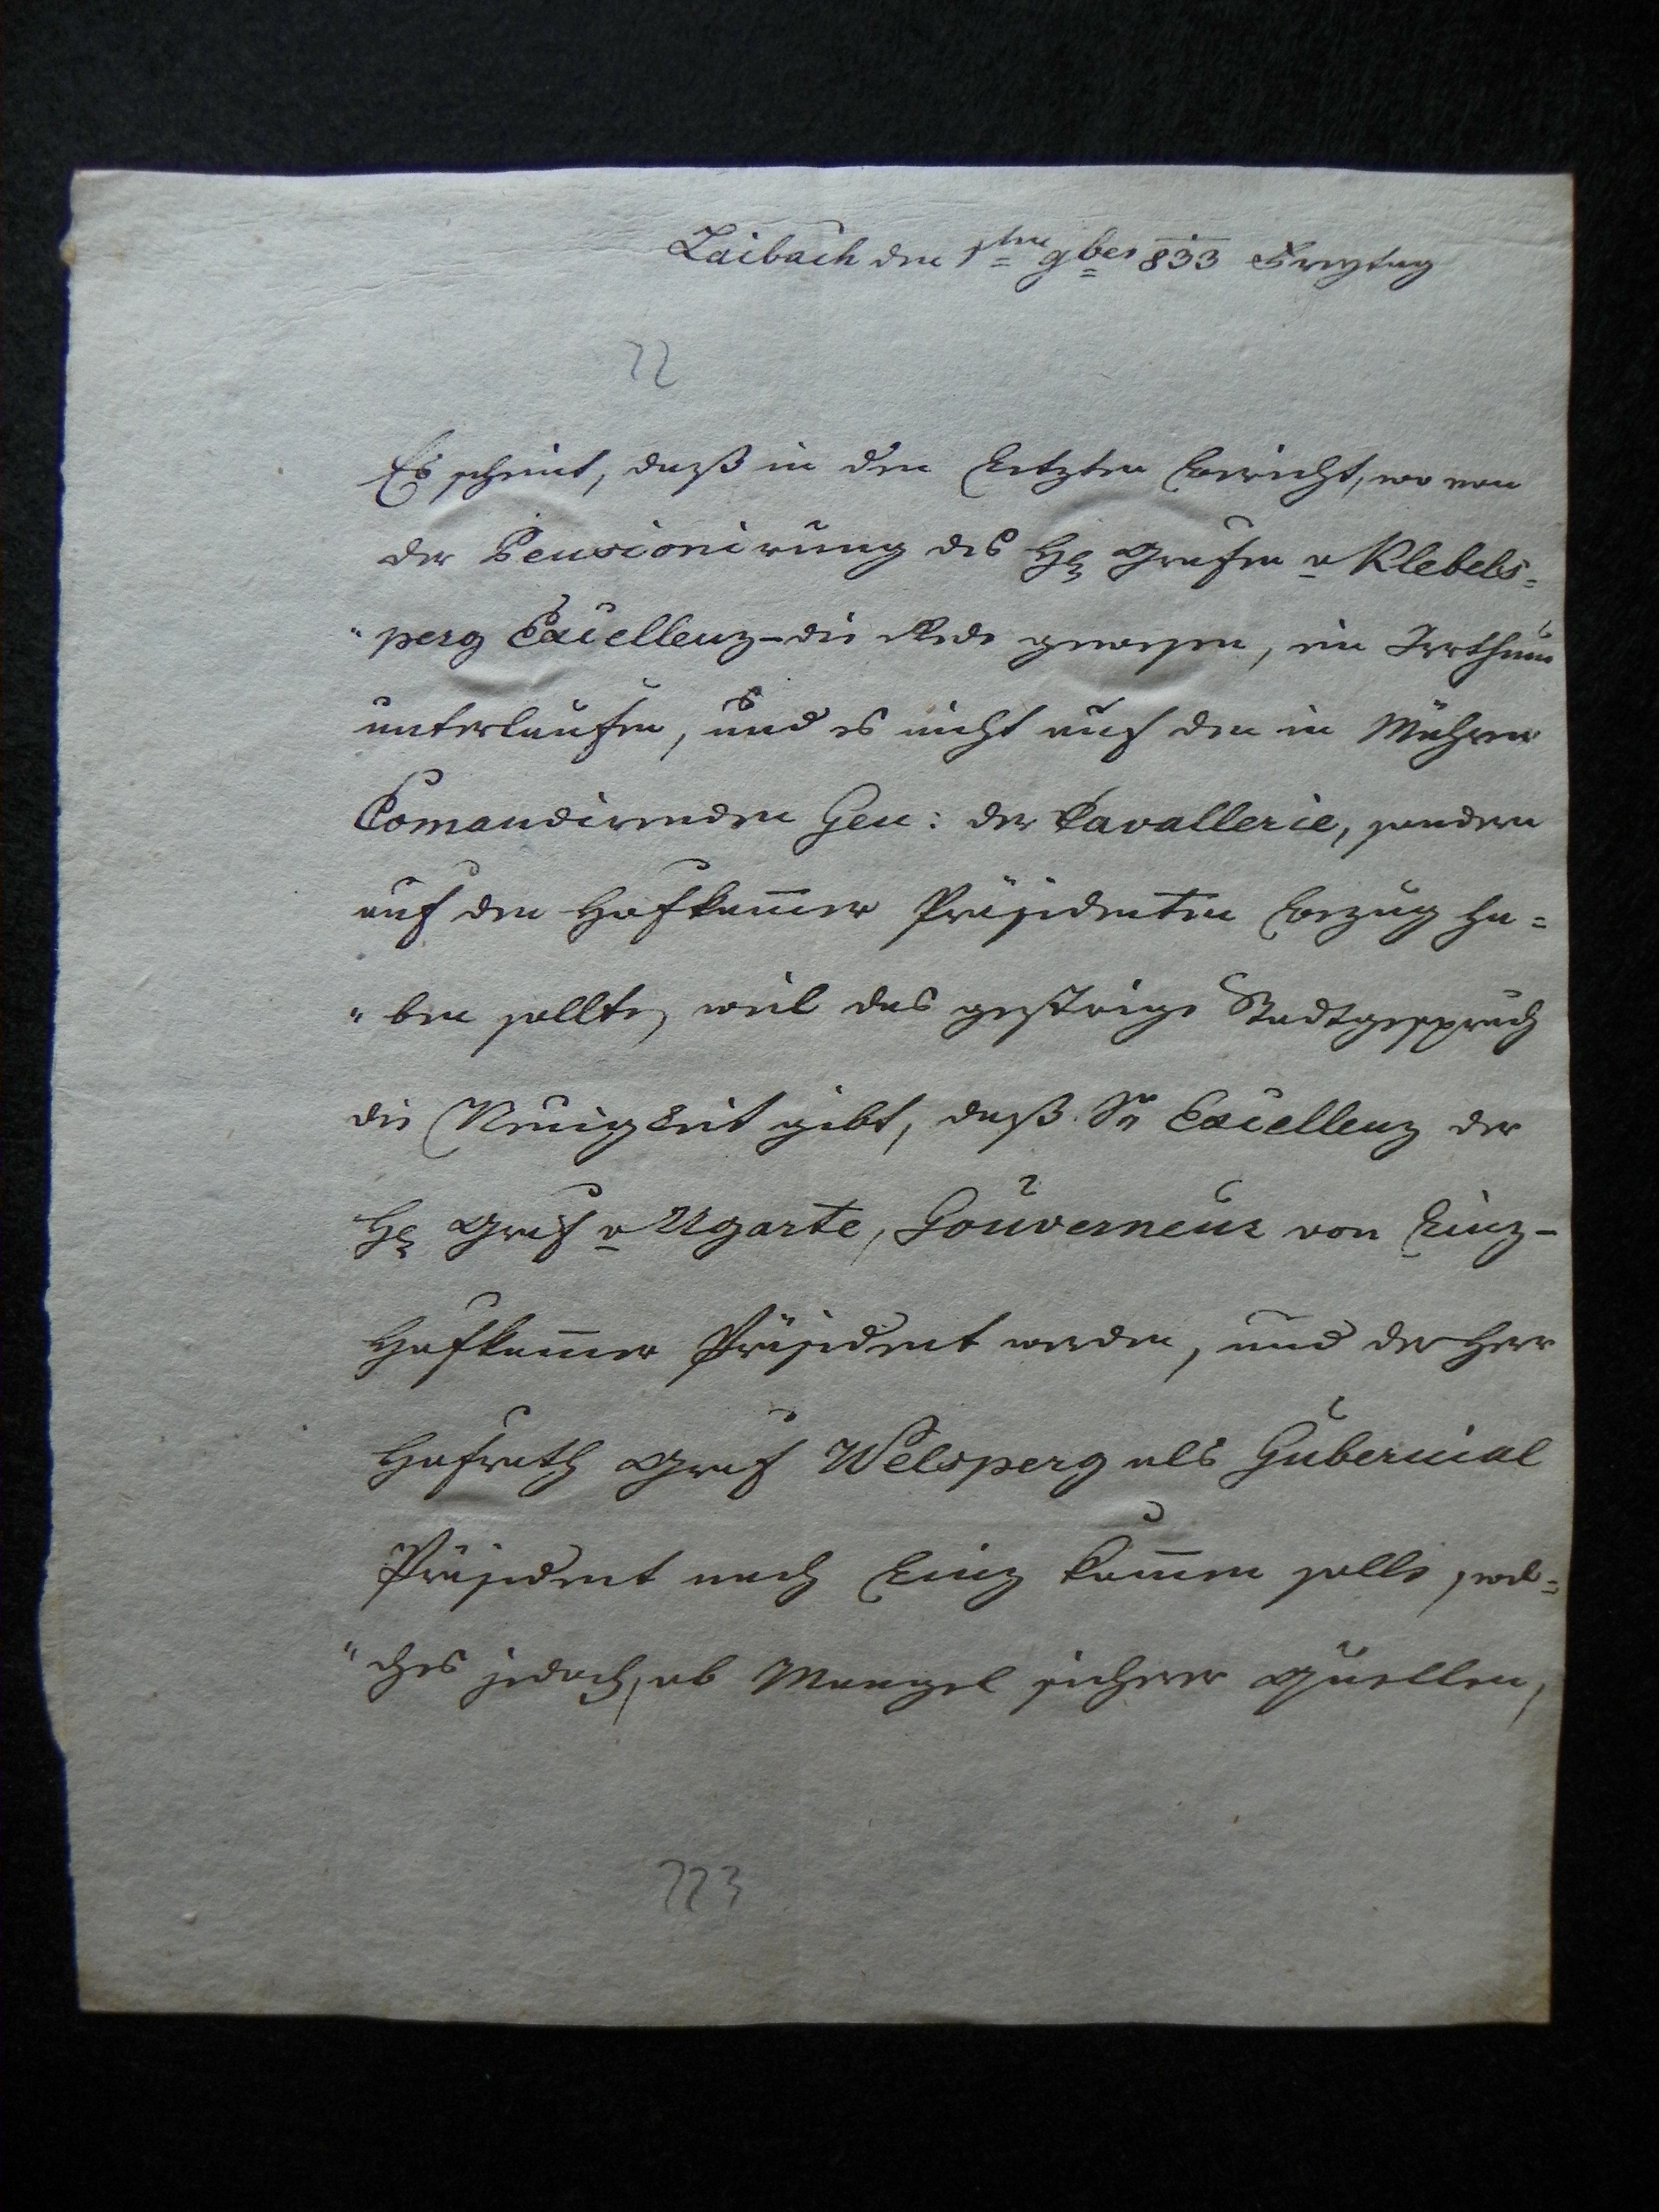 Laibach den 1ten 9ber 833 Freytag
22
Es scheint, daß in den letzten Bericht, wo von
der Pensionirung des H: Grafen v Klebels=
"perg Excellenz – die Rede gewesen, ein Irrthum
unterlaufen, und es nicht auf den in Mähren
Comandirenden Gen: der Kavallerie, sondern
auf den Hofkam̅er Präsidenten Bezug ha=
"ben sollte, weil das gestrige Stadtgespräch
die Neuigkeit gibt, daß Se Excellenz der
H: Graf v Ugarte, Gouverneur von Linz –
Hofkam̅er Präsident werden, und der Herr
Hofrath Graf Welsperg als Gubernial
Präsident nach Linz kom̅en solle, wel=
"ches jedoch, ob Mangel sicherer Quellen,
223